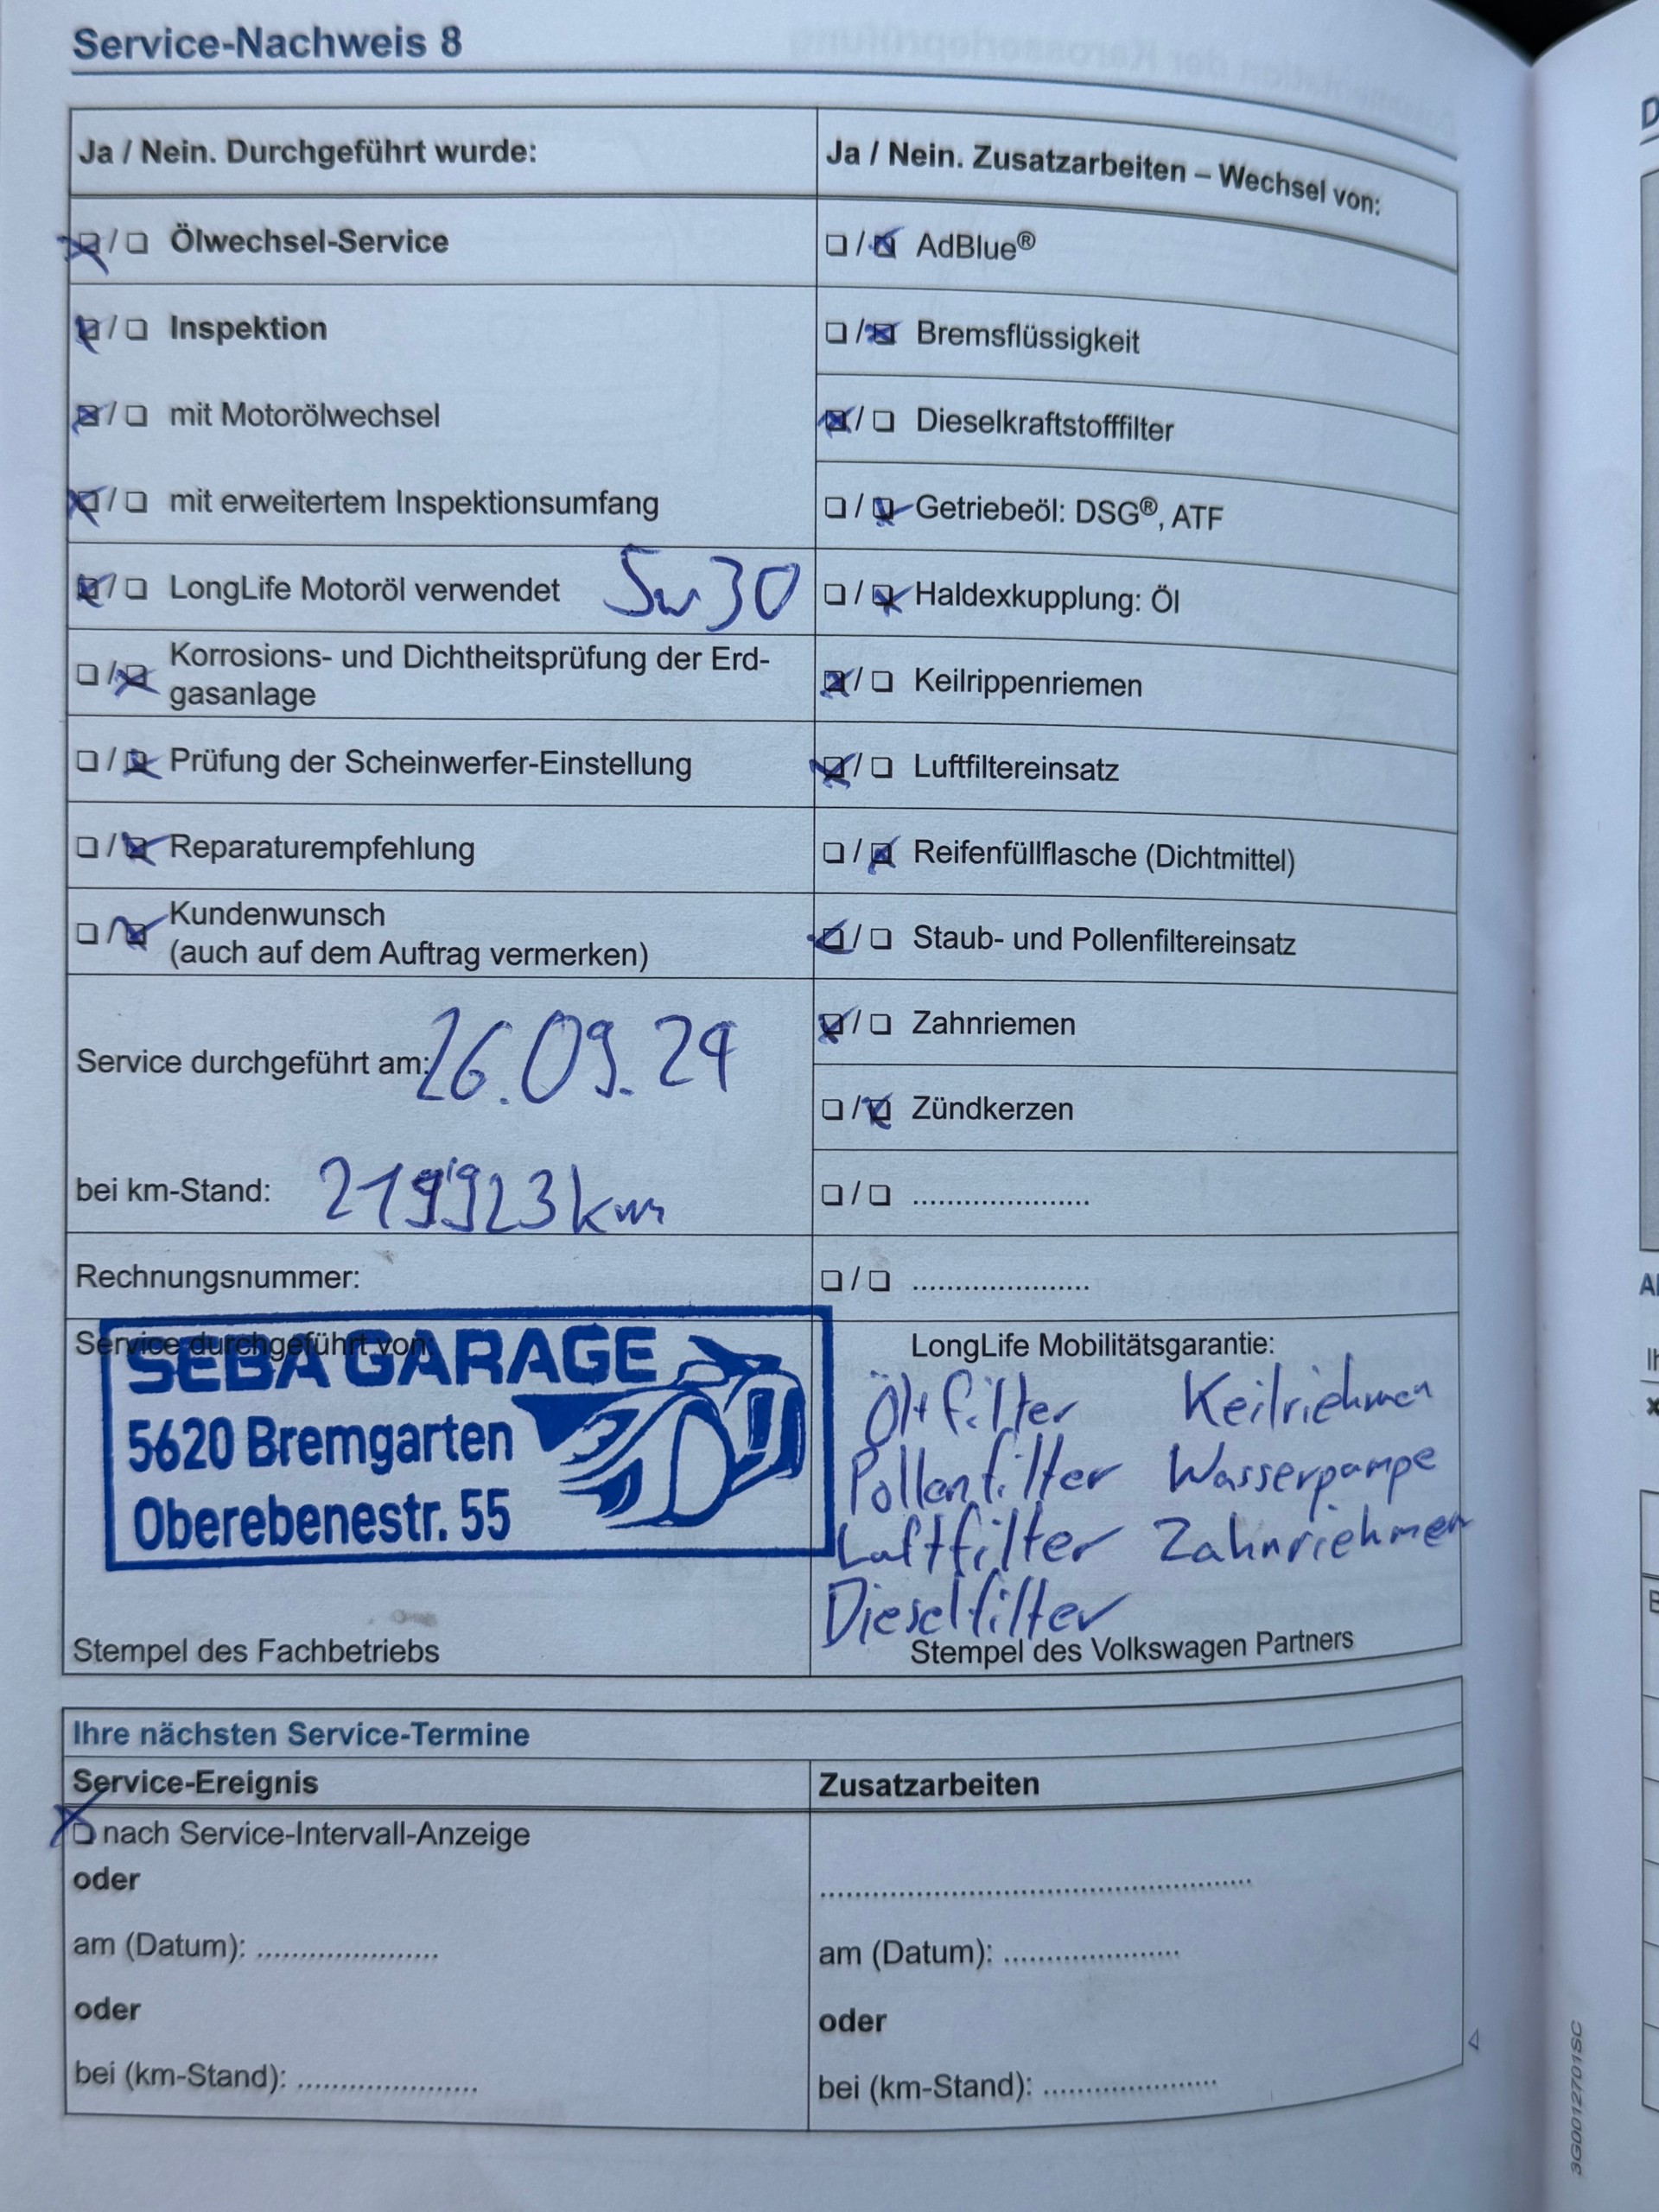 Service-Nachweis 8
Ja / Nein. Durchgeführt wurde:
☒ / ☐ Ölwechsel-Service
☒ / ☐ Inspektion
☒ / ☐ mit Motorölwechsel
☒ / ☐ mit erweitertem Inspektionsumfang
☒ / ☐ LongLife Motoröl verwendet 5w30
☐ / ☒ Korrosions- und Dichtheitsprüfung der Erd-
gasanlage
☐ / ☒ Prüfung der Scheinwerfer-Einstellung
☐ / ☒ Reparaturempfehlung
☐ / ☒ Kundenwunsch
(auch auf dem Auftrag vermerken)
Service durchgeführt am: 26.09.24
bei km-Stand: 219'923 km
Rechnungsnummer:
Service durchgeführt von:
SEBA GARAGE
5620 Bremgarten
Oberebenestr. 55
Stempel des Fachbetriebs
Ja / Nein. Zusatzarbeiten – Wechsel von:
☐ / ☒ AdBlue®
☐ / ☒ Bremsflüssigkeit
☒ / ☐ Dieselkraftstofffilter
☐ / ☒ Getriebeöl: DSG®, ATF
☐ / ☒ Haldexkupplung: Öl
☒ / ☐ Keilrippenriemen
☒ / ☐ Luftfiltereinsatz
☐ / ☒ Reifenfüllflasche (Dichtmittel)
☒ / ☐ Staub- und Pollenfiltereinsatz
☒ / ☐ Zahnriemen
☐ / ☒ Zündkerzen
☐ / ☐ ....................
☐ / ☐ ....................
LongLife Mobilitätsgarantie:
Ölfilter Keilriehmen
Pollenfilter Wasserpumpe
Luftfilter Zahnriehmen
Dieselfilter
Stempel des Volkswagen Partners
Ihre nächsten Service-Termine
Service-Ereignis
☒ nach Service-Intervall-Anzeige
oder
am (Datum): ....................
oder
bei (km-Stand): ....................
Zusatzarbeiten
........................................
am (Datum): ....................
oder
bei (km-Stand): ....................
3G0012701SC